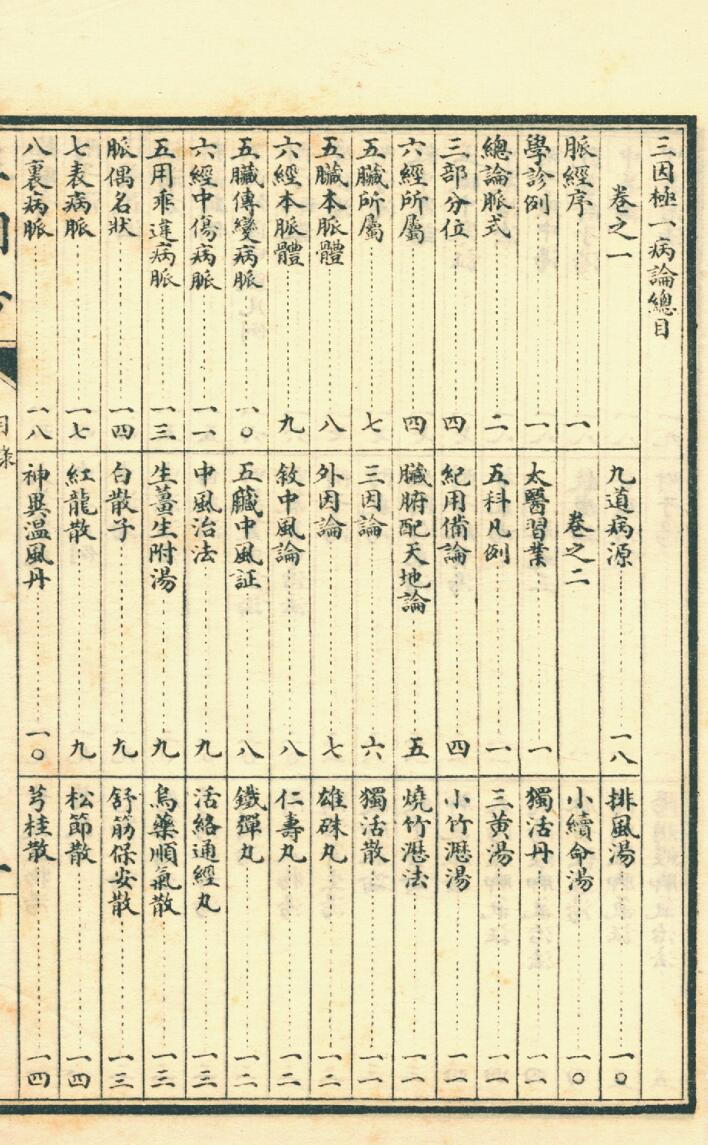 三因極一病論總目
卷之一
脈經序 一
學診例 一
總論脈式 二
三部分位 四
六經所屬 四
五臟所屬 七
五臟本脈體 八
六經本脈體 九
五臟傳變病脈 一〇
六經中傷病脈 一一
五用乖違病脈 一三
脈偶名狀 一四
七表病脈 一七
八裏病脈 一八
九道病源 一八
卷之二
太醫習業 一
五科凡例 一
紀用備論 四
臟腑配天地論 五
三因論 六
外因論 七
敘中風論 八
五臟中風証 八
中風治法 九
生薑生附湯 九
白散子 九
紅龍散 九
神異温風丹 一〇
排風湯 一〇
小續命湯 一〇
獨活丹 一一
三黄湯 一一
小竹瀝湯 一一
燒竹瀝法 一一
獨活散 一一
雄硃丸 一二
仁壽丸 一二
鐵彈丸 一二
活絡通經丸 一三
烏藥順氣散 一三
舒筋保安散 一三
松節散 一四
芎桂散 一四
目錄